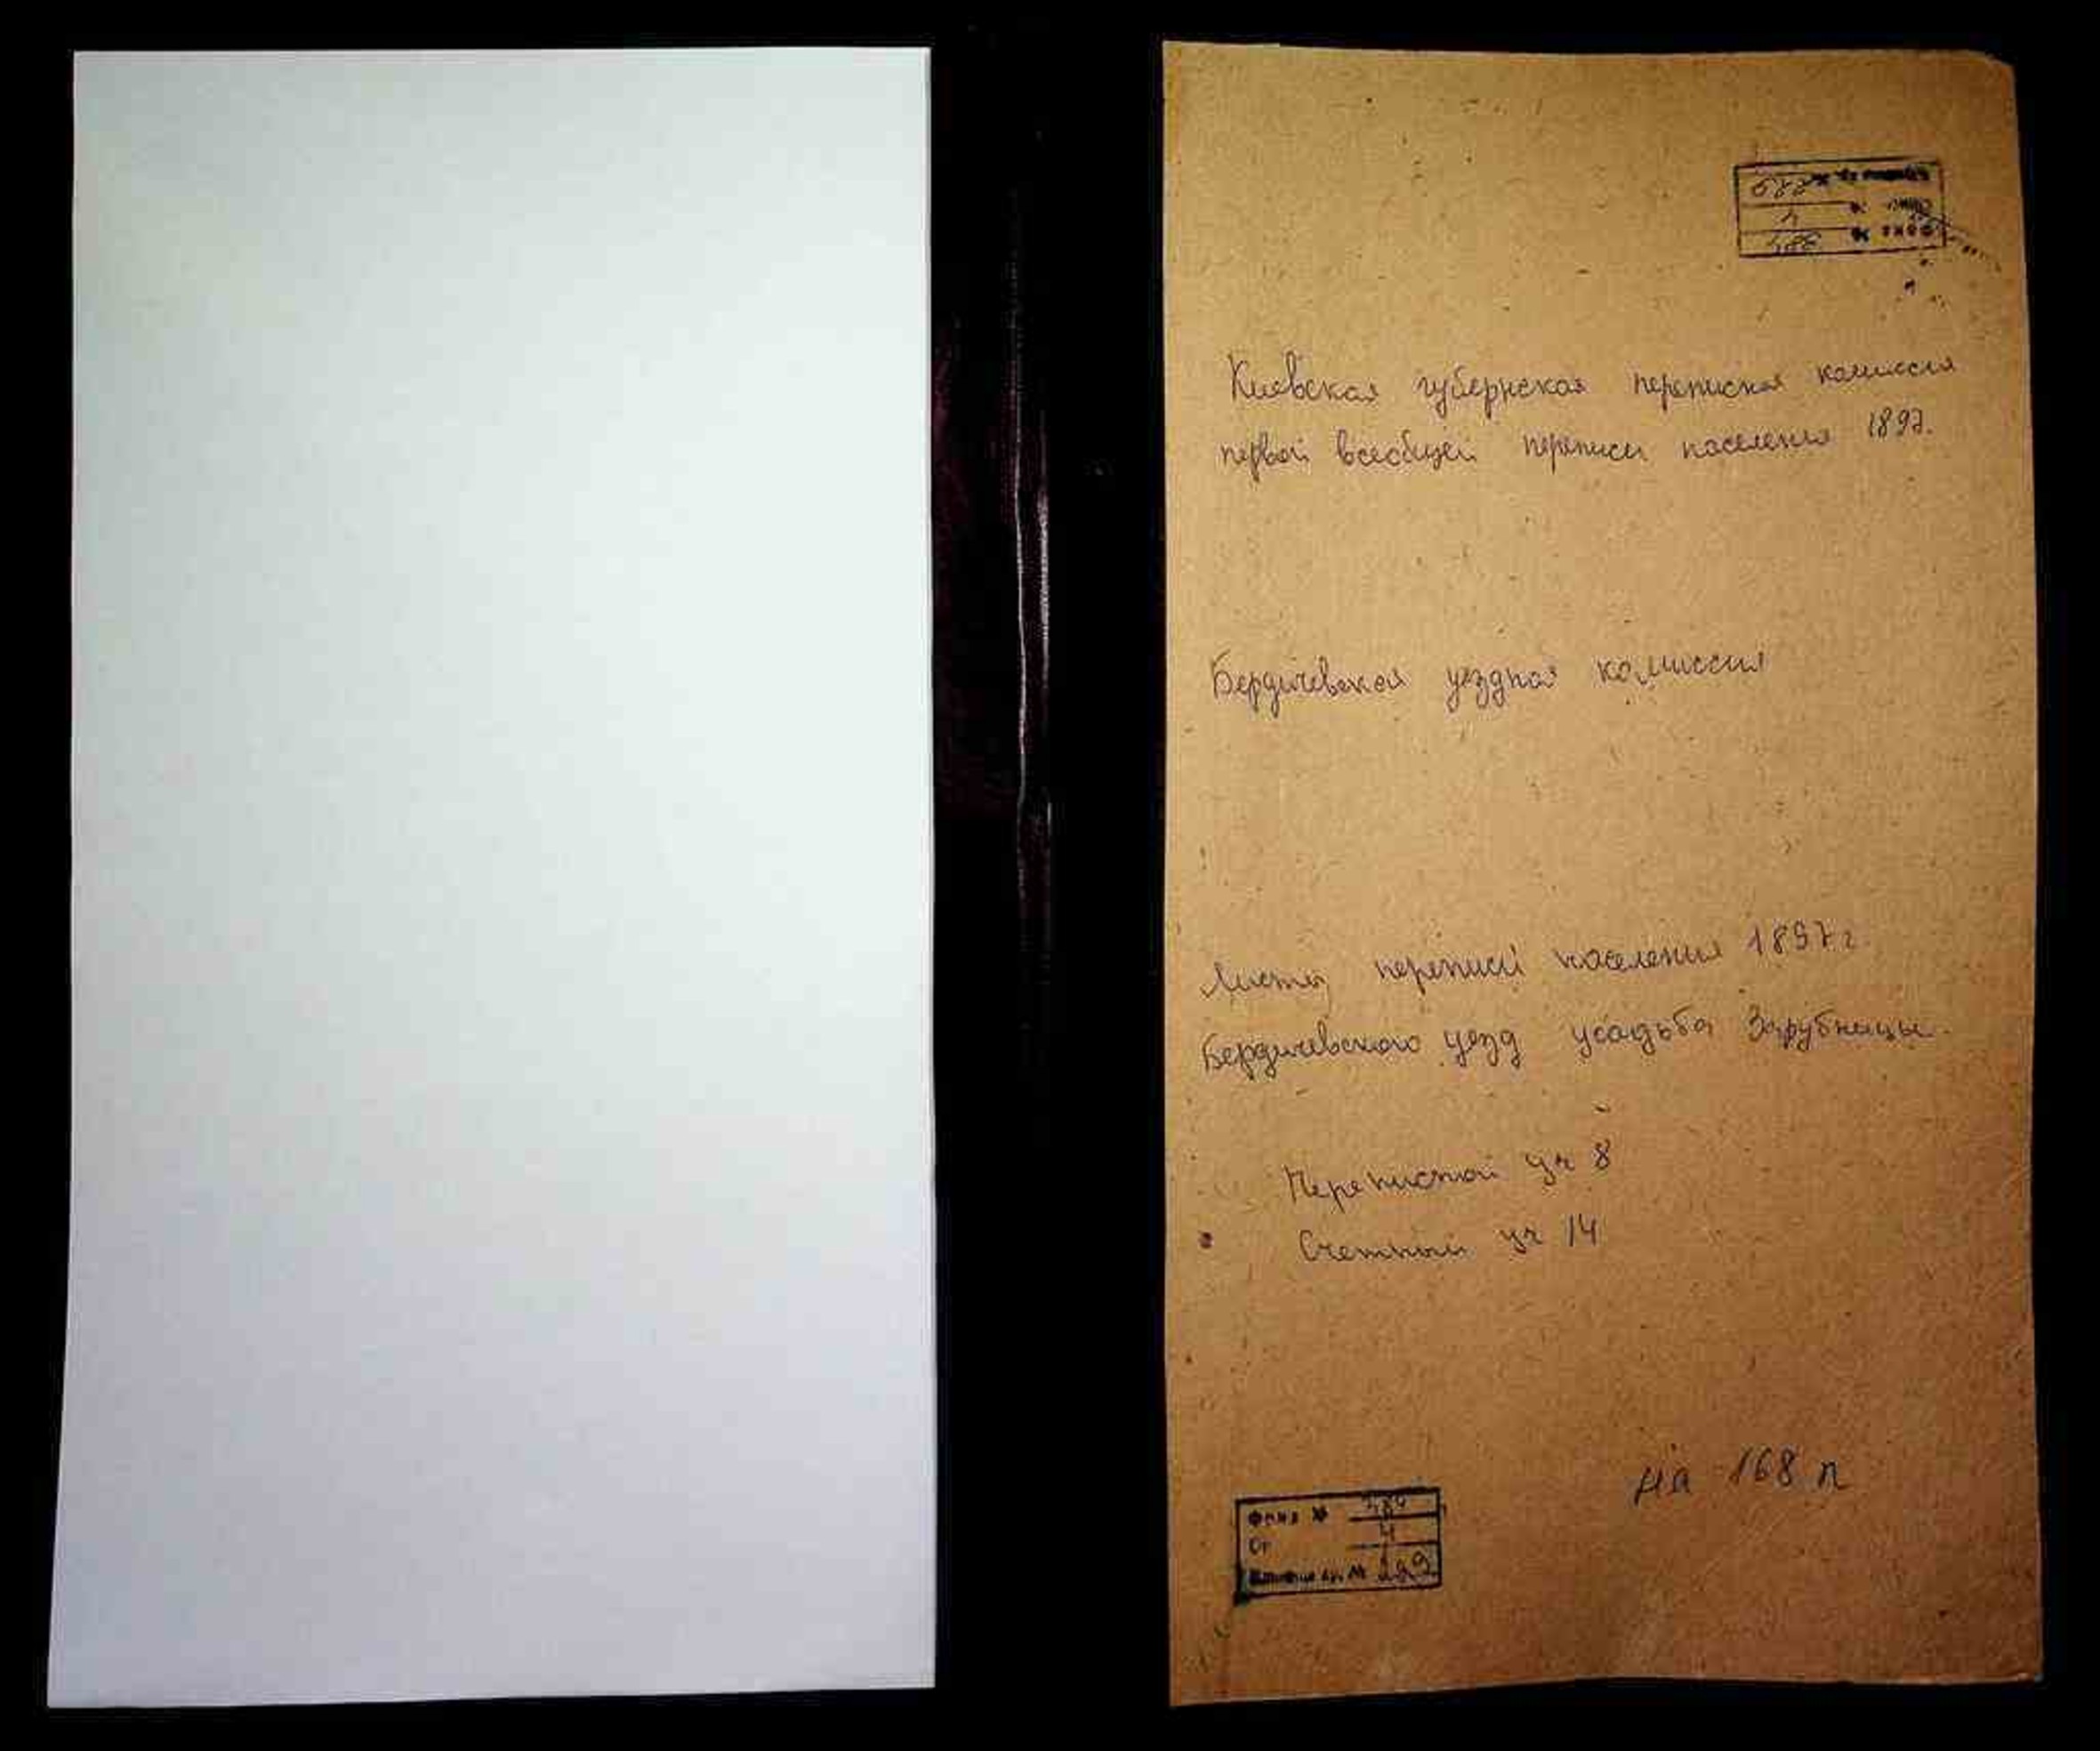 Фонд № 384
Опись № 4
Единица хр. № 229
Киевская губернская переписная комиссия
первой всеобщей переписи населения 1897.
Бердичевская уездная комиссия
Листы переписи населения 1897 г.
Бердичевского уезд усадьба Зарубинцы.
Переписной уч 8
Счетный уч 14
на 168 л
Фонд № 384
Оп 4
Единица хр. № 229